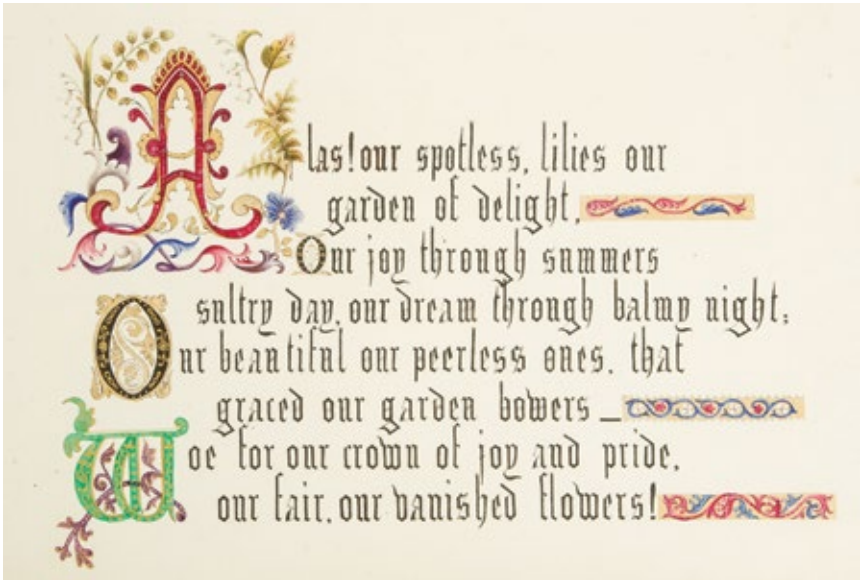 Alas! our spotless, lilies our
garden of delight,
Our joy through summers
sultry day, our dream through balmy night;
Our beautiful our peerless ones, that
graced our garden bowers —
Woe for our crown of joy and pride,
our fair, our vanished flowers!